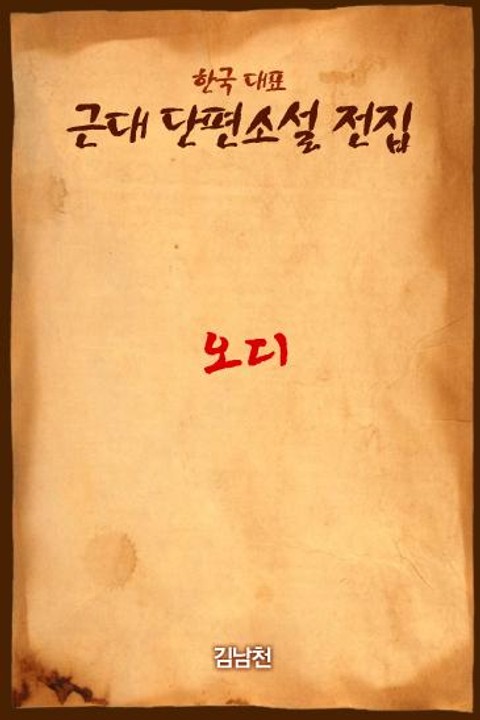 한국 대표
근대 단편소설 전집
오디
김남천